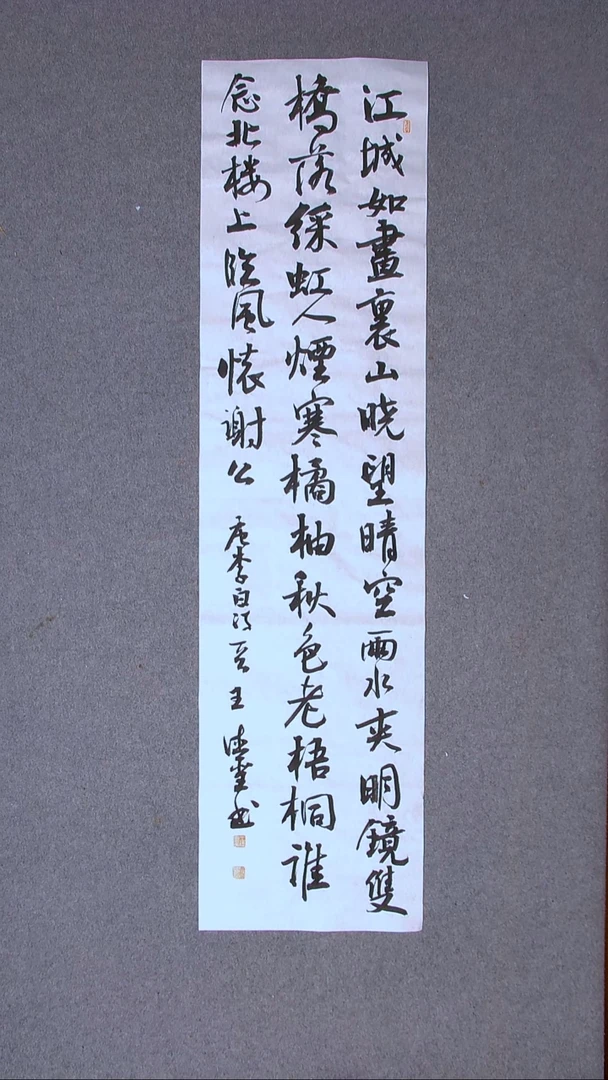 江城如畫裏山晓望晴空兩水夾明鏡雙
橋落綵虹人煙寒橘柚秋色老梧桐誰
念北楼上临风懷谢公 唐李白诗 王